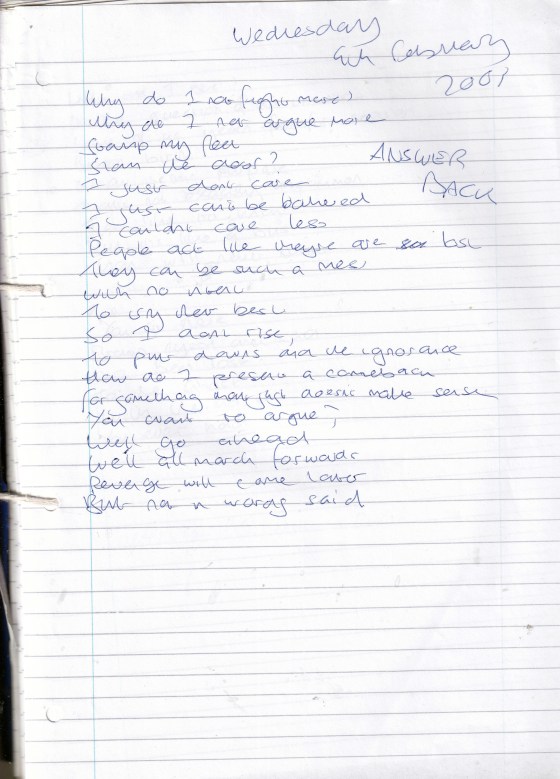 Wednesday
February
2001
ANSWER
BACK
Why do I not fight more?
Why do I not argue more
Stamp my feet
Slam the door?
I just dont care
I just can't be bothered
I couldnt care less
People act like they're are
They can be such a mess
with no
To try their best
So I dont rise,
To put downs and the ignorance
How do I present a comeback
for something that just doesnt make sense
You want to argue,
We'll go ahead
We'll all march forwards
Revenge will come later
But not a words said